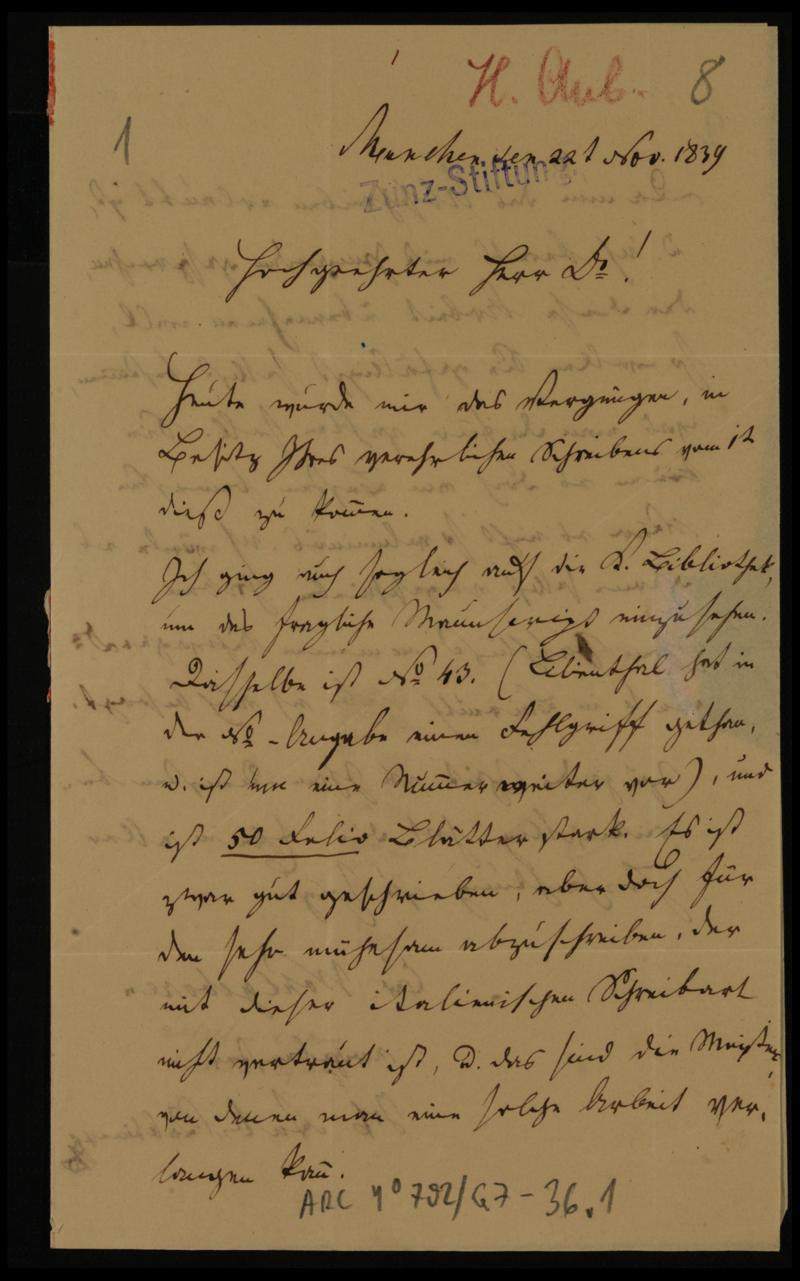 H. Aub. 8
1
München den 22t Nov. 1839
Zunz-Stiftung
Hochgeehrter Herr Dr!
Heute wurde mir das Vergnügen, in
Besitz Ihres verehrlichen Schreibens vom 1t
dieß zu kom̄en.
Ich ging auch sogleich auf die K. Bibliothek,
um das fragliche Manuscript einzusehen.
Dasselbe ist No 43. (Lilienthal hat in
der No-Angabe einen Fehlgriff gethan,
u. ist um eine Num̄er weiter vor), und
ist 50 Folio Blätter stark. Es ist
zwar gut geschrieben, aber doch für
den sehr mühesam abzuschreiben, der
mit dieser italienischen Schreibart
nicht vertraut ist, u. das sind die Meisten,
von denen man eine solche Arbeit ver-
langen kan̄.
ARC 4° 792/G7-36.1